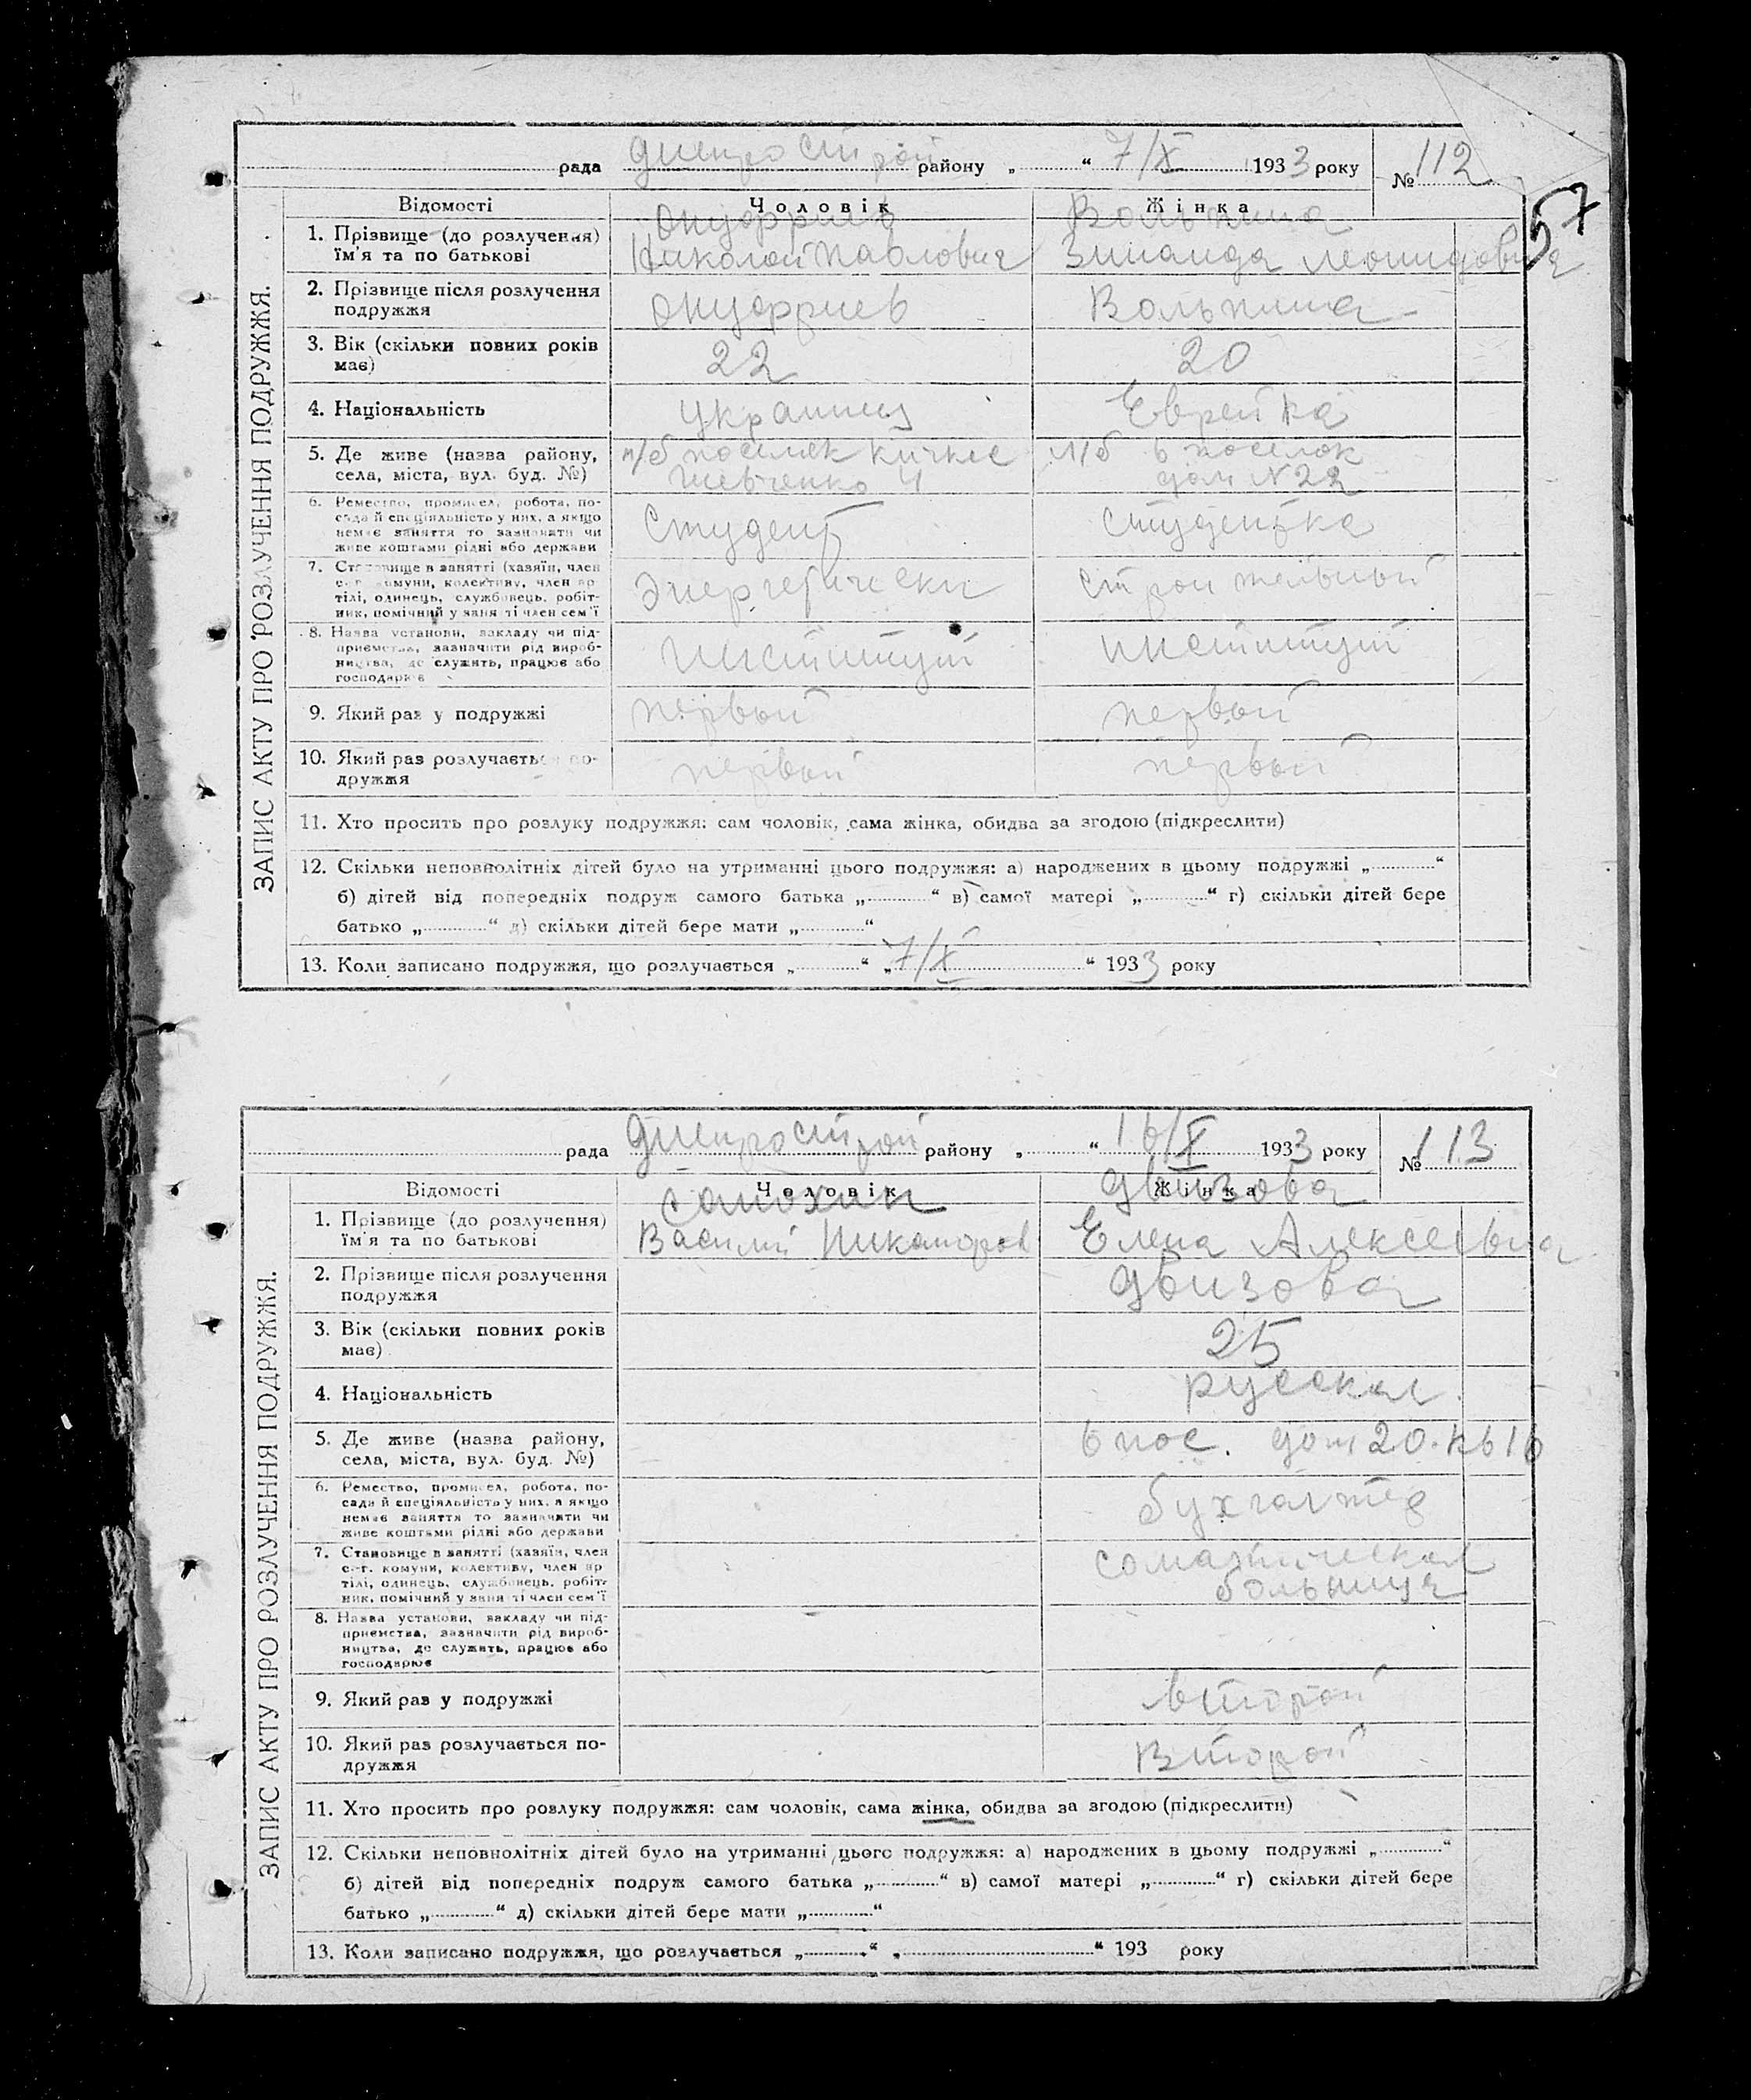 рада Днепрострой району „ “ 7/X 1933 року № 112
57
Відомості Чоловік Жінка
ЗАПИС АКТУ ПРО РОЗЛУЧЕННЯ ПОДРУЖЖЯ.
Онуфриев Вольпина
1. Прізвище (до розлучення) Николай Павлович Зинаида Леонидовна
їм'я та по батькові
2. Прізвище після розлучення Онуфриев Вольпина
подружжя
3. Вік (скільки повних років 22 20
має)
4. Національність Украинец Еврейка
5. Де живе (назва району, п/б поселек Кичкас 6 поселок
села, міста, вул. буд. №) Шевченко 4 дом N 22
6. Ремество, промисел, робота, по-
сада й спеціяльність у них, а якщо Студент студентка
немає заняття то зазначити чи
живе коштами рідні або держави
7. Становище в занятті (хазяїн, член
с.-г. комуни, колективу, член ар- Энергетически строительный
тілі, одинець, службовець, робіт-
ник, помічний у занятті член сем'ї
8. Назва установи, закладу чи під-
приємства, зазначити рід вироб- институт институт
ництва, де служить, працює або
господарює
9. Який раз у подружжі первый первый
10. Який раз розлучається по- первый первый
дружжя
11. Хто просить про розлуку подружжя: сам чоловік, сама жінка, обидва за згодою (підкреслити)
12. Скільки неповнолітніх дітей було на утриманні цього подружжя: а) народжених в цьому подружжі „ “
б) дітей від попередніх подруж самого батька „ “ в) самої матері „ “ г) скільки дітей бере
батько „ “ д) скільки дітей бере мати „ “
13. Коли записано подружжя, що розлучається „ “ „ 7/X “ 1933 року
рада Днепрострой району „ “ 16/X 1933 року № 113
Відомості Чоловік Жінка
ЗАПИС АКТУ ПРО РОЗЛУЧЕННЯ ПОДРУЖЖЯ.
Самохин Двизова
1. Прізвище (до розлучення) Василий Никаноров Елена Алексеевна
їм'я та по батькові
2. Прізвище після розлучення Двизова
подружжя
3. Вік (скільки повних років 25
має)
4. Національність русская
5. Де живе (назва району, 6 пос. дом 20. кв 16
села, міста, вул. буд. №)
6. Ремество, промисел, робота, по-
сада й спеціяльність у них, а якщо бухгалтер
немає заняття то зазначити чи
живе коштами рідні або держави
7. Становище в занятті (хазяїн, член соматическая
с.-г. комуни, колективу, член ар-
тілі, одинець, службовець, робіт- больница
ник, помічний у занятті член сем'ї
8. Назва установи, закладу чи під-
приємства, зазначити рід вироб-
ництва, де служить, працює або
господарює
9. Який раз у подружжі второй
10. Який раз розлучається по- Второй
дружжя
11. Хто просить про розлуку подружжя: сам чоловік, сама жінка, обидва за згодою (підкреслити)
12. Скільки неповнолітніх дітей було на утриманні цього подружжя: а) народжених в цьому подружжі „ “
б) дітей від попередніх подруж самого батька „ “ в) самої матері „ “ г) скільки дітей бере
батько „ “ д) скільки дітей бере мати „ “
13. Коли записано подружжя, що розлучається „ “ „ “ 193 року